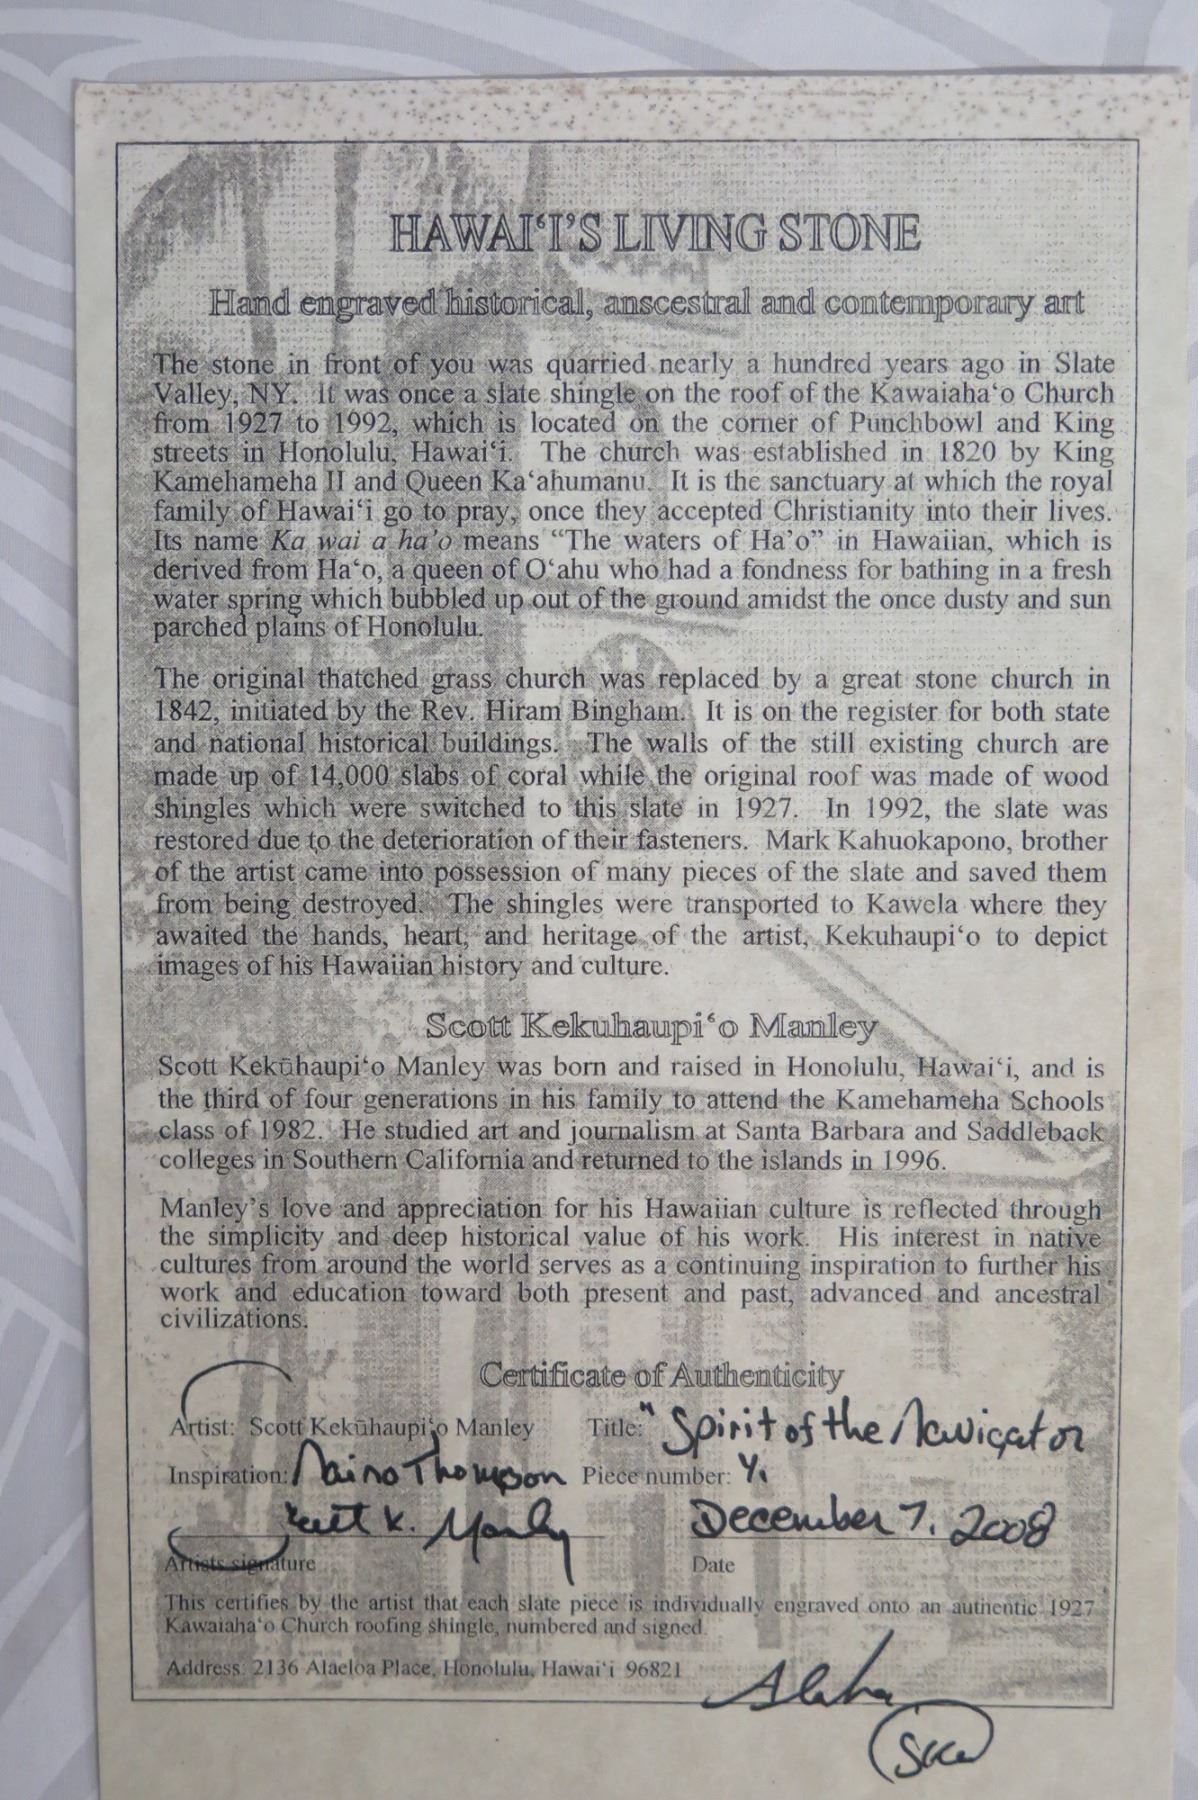 HAWAI‘I’S LIVING STONE
Hand engraved historical, anscestral and contemporary art
The stone in front of you was quarried nearly a hundred years ago in Slate
Valley, NY. It was once a slate shingle on the roof of the Kawaiaha‘o Church
from 1927 to 1992, which is located on the corner of Punchbowl and King
streets in Honolulu, Hawai‘i. The church was established in 1820 by King
Kamehameha II and Queen Ka‘ahumanu. It is the sanctuary at which the royal
family of Hawai‘i go to pray, once they accepted Christianity into their lives.
Its name Ka wai a ha’o means “The waters of Ha’o” in Hawaiian, which is
derived from Ha‘o, a queen of O‘ahu who had a fondness for bathing in a fresh
water spring which bubbled up out of the ground amidst the once dusty and sun
parched plains of Honolulu.
The original thatched grass church was replaced by a great stone church in
1842, initiated by the Rev. Hiram Bingham. It is on the register for both state
and national historical buildings. The walls of the still existing church are
made up of 14,000 slabs of coral while the original roof was made of wood
shingles which were switched to this slate in 1927. In 1992, the slate was
restored due to the deterioration of their fasteners. Mark Kahuokapono, brother
of the artist came into possession of many pieces of the slate and saved them
from being destroyed. The shingles were transported to Kawela where they
awaited the hands, heart, and heritage of the artist, Kekuhaupi‘o to depict
images of his Hawaiian history and culture.
Scott Kekuhaupi‘o Manley
Scott Kekūhaupi‘o Manley was born and raised in Honolulu, Hawai‘i, and is
the third of four generations in his family to attend the Kamehameha Schools
class of 1982. He studied art and journalism at Santa Barbara and Saddleback
colleges in Southern California and returned to the islands in 1996.
Manley’s love and appreciation for his Hawaiian culture is reflected through
the simplicity and deep historical value of his work. His interest in native
cultures from around the world serves as a continuing inspiration to further his
work and education toward both present and past, advanced and ancestral
civilizations.
Certificate of Authenticity
Artist: Scott Kekūhaupi‘o Manley Title: "Spirit of the Navigator
Inspiration: Naino Thompson Piece number:
Scott K. Manley December 7, 2008
Artists signature Date
This certifies by the artist that each slate piece is individually engraved onto an authentic 1927
Kawaiaha‘o Church roofing shingle, numbered and signed.
Address: 2136 Alaeloa Place, Honolulu, Hawai‘i 96821
Aloha